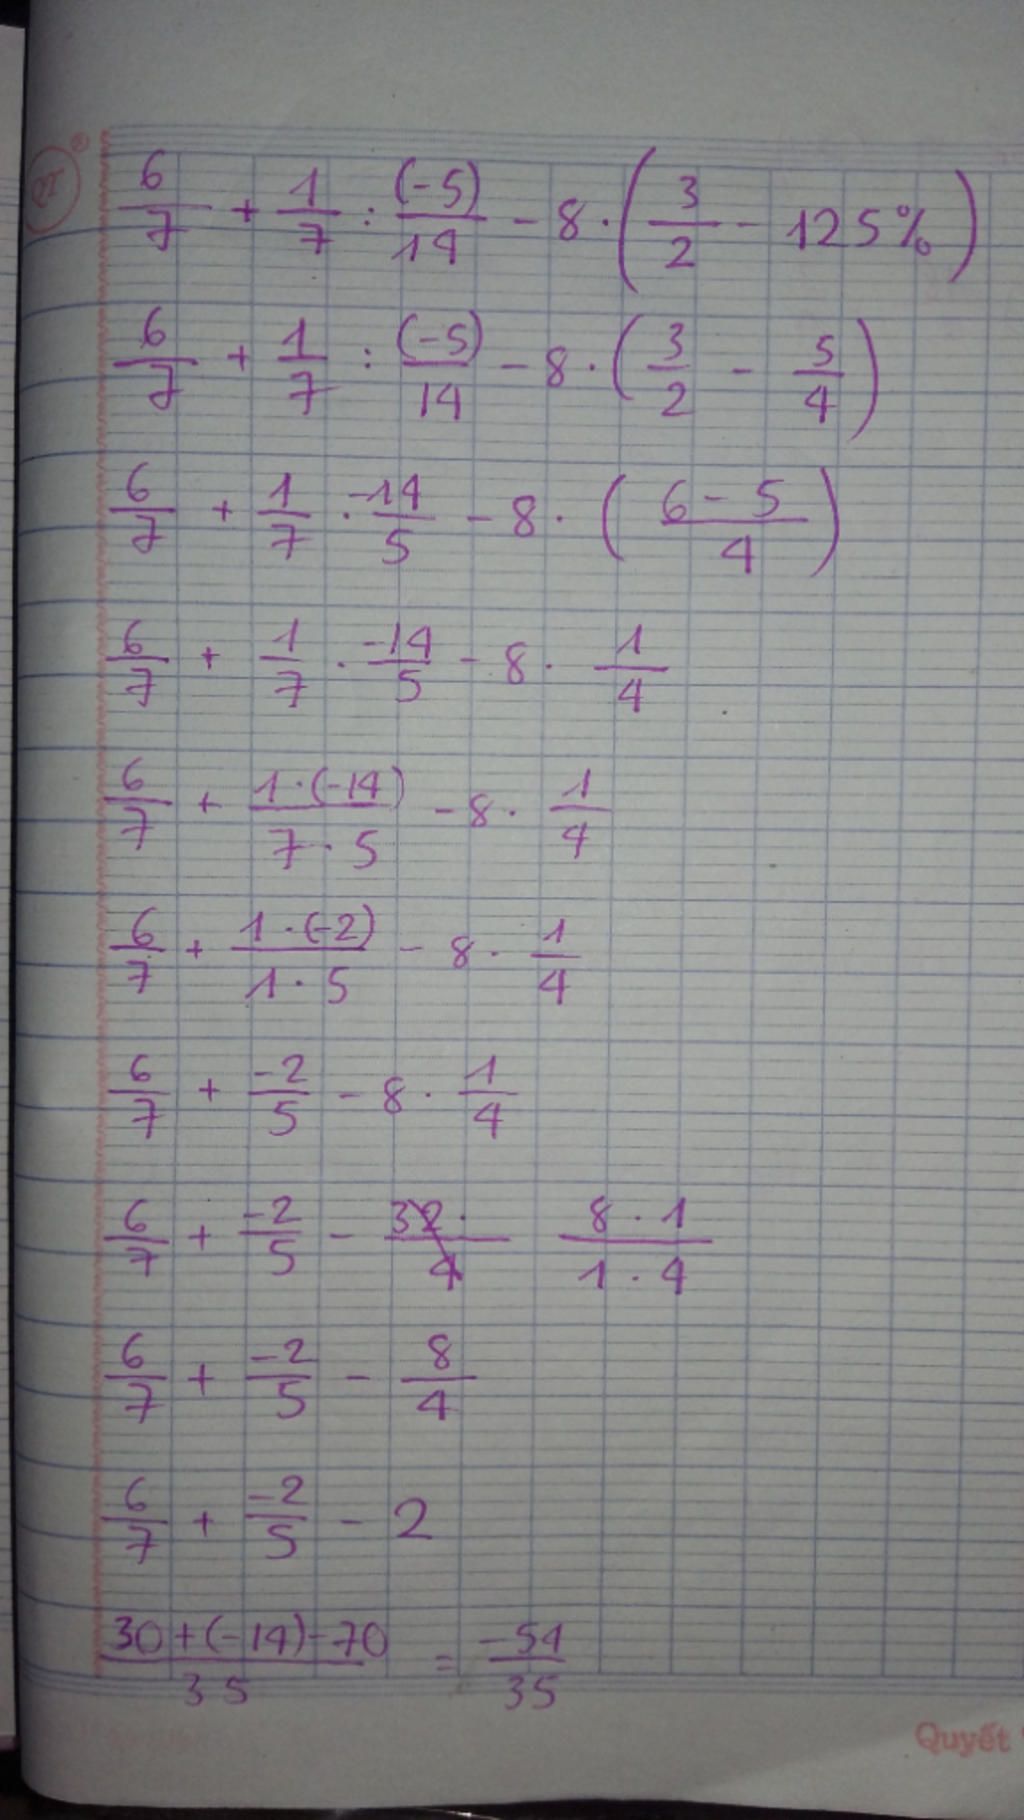 6/7 + 1/7 : (-5)/14 - 8 . (3/2 - 125%)
6/7 + 1/7 : (-5)/14 - 8 . (3/2 - 5/4)
6/7 + 1/7 . -14/5 - 8 . (6 - 5/4)
6/7 + 1/7 . -14/5 - 8 . 1/4
6/7 + 1.(-14)/7.5 - 8 . 1/4
6/7 + 1.(-2)/1.5 - 8 . 1/4
6/7 + -2/5 - 8 . 1/4
6/7 + -2/5 - 32/4 8.1/1.4
6/7 + -2/5 - 8/4
6/7 + -2/5 - 2
30+(-14)-70/35 = -54/35
Quyết